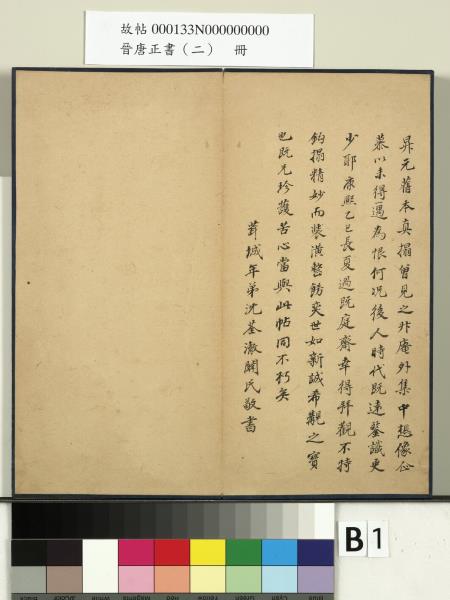 故帖 000133N000000000
晉唐正書（二） 冊
昇元舊本真搨曾見之升庵外集中想像企
慕以未得遇為恨何况後人時代既遠鑒識更
少耶康熙乙巳長夏過既庭齋幸得拜觀不特
鈎搨精妙而裝潢整飭奕世如新誠希觀之寶
也既兄珍護苦心當與此帖同不朽矣
葺城年弟沈荃瀫闇氏敬書
B 1
Black
3/Color
White
Magenta
Red
Yellow
Green
Cyan
Blue